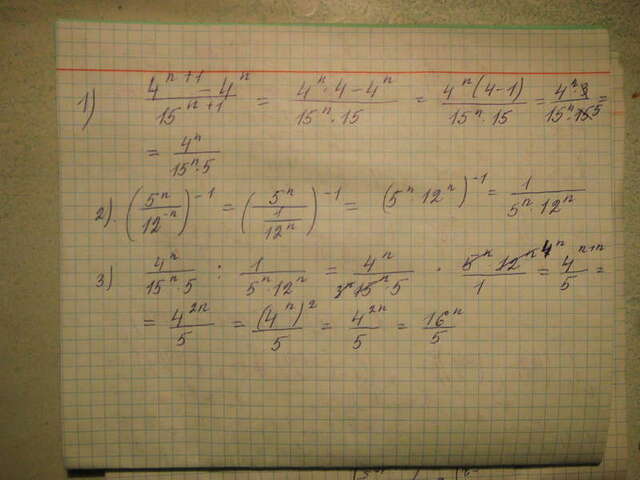 1) \frac{4^{n+1} - 4^n}{15^{n+1}} = \frac{4^n · 4 - 4^n}{15^n · 15} = \frac{4^n (4-1)}{15^n · 15} = \frac{4^n · 3}{15^n · 15 5} =
= \frac{4^n}{15^n · 5}
2). (\frac{5^n}{12^{-n}})^{-1} = (\frac{5^n}{\frac{1}{12^n}})^{-1} = (5^n · 12^n)^{-1} = \frac{1}{5^n · 12^n}
3) \frac{4^n}{15^n · 5} : \frac{1}{5^n · 12^n} = \frac{4^n}{3^n 15^n · 5} · \frac{5^n 12^n 4^n}{1} = \frac{4^{n+n}}{5} =
= \frac{4^{2n}}{5} = \frac{(4^n)^2}{5} = \frac{4^{2n}}{5} = \frac{16^n}{5}